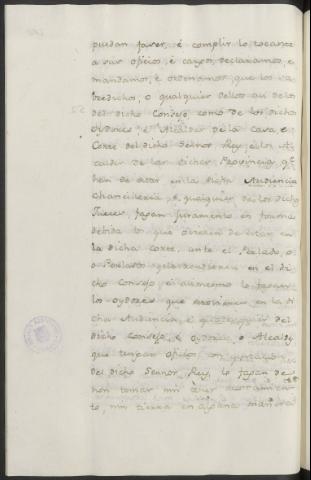 puedan facer, é complir lo tocante
a sus oficios, é cargos, declaramos, e
mandamos, é ordenamos, que los so
bredichos, o qualquier dellos asi de los
del dicho Consejo, como de los dichos
oydores, é Alcaldes de la Casa, e
Corte del dicho Sennor Rey, e los Al
caldes de las dichas Provincias, q.e
han de estar en la dicha Audiencia
Chancilleria, é qualquier de los dichos
Jueces, fagan Juramento en forma
debida los que ovieren de estar en
la dicha corte, ante el Perlado, o
o Perlados que residieren en el di
cho Consejo, é asimesmo lo fagan
los oydores que estovieren en la di
cha Audiencia, é qualquier del
dicho Consejo, é oydores, o Alcaldes
que tengan oficios,
del dicho Sennor Rey, lo fagan de
non tomar nin aver acostamien
to, nin tierra en alguna manera